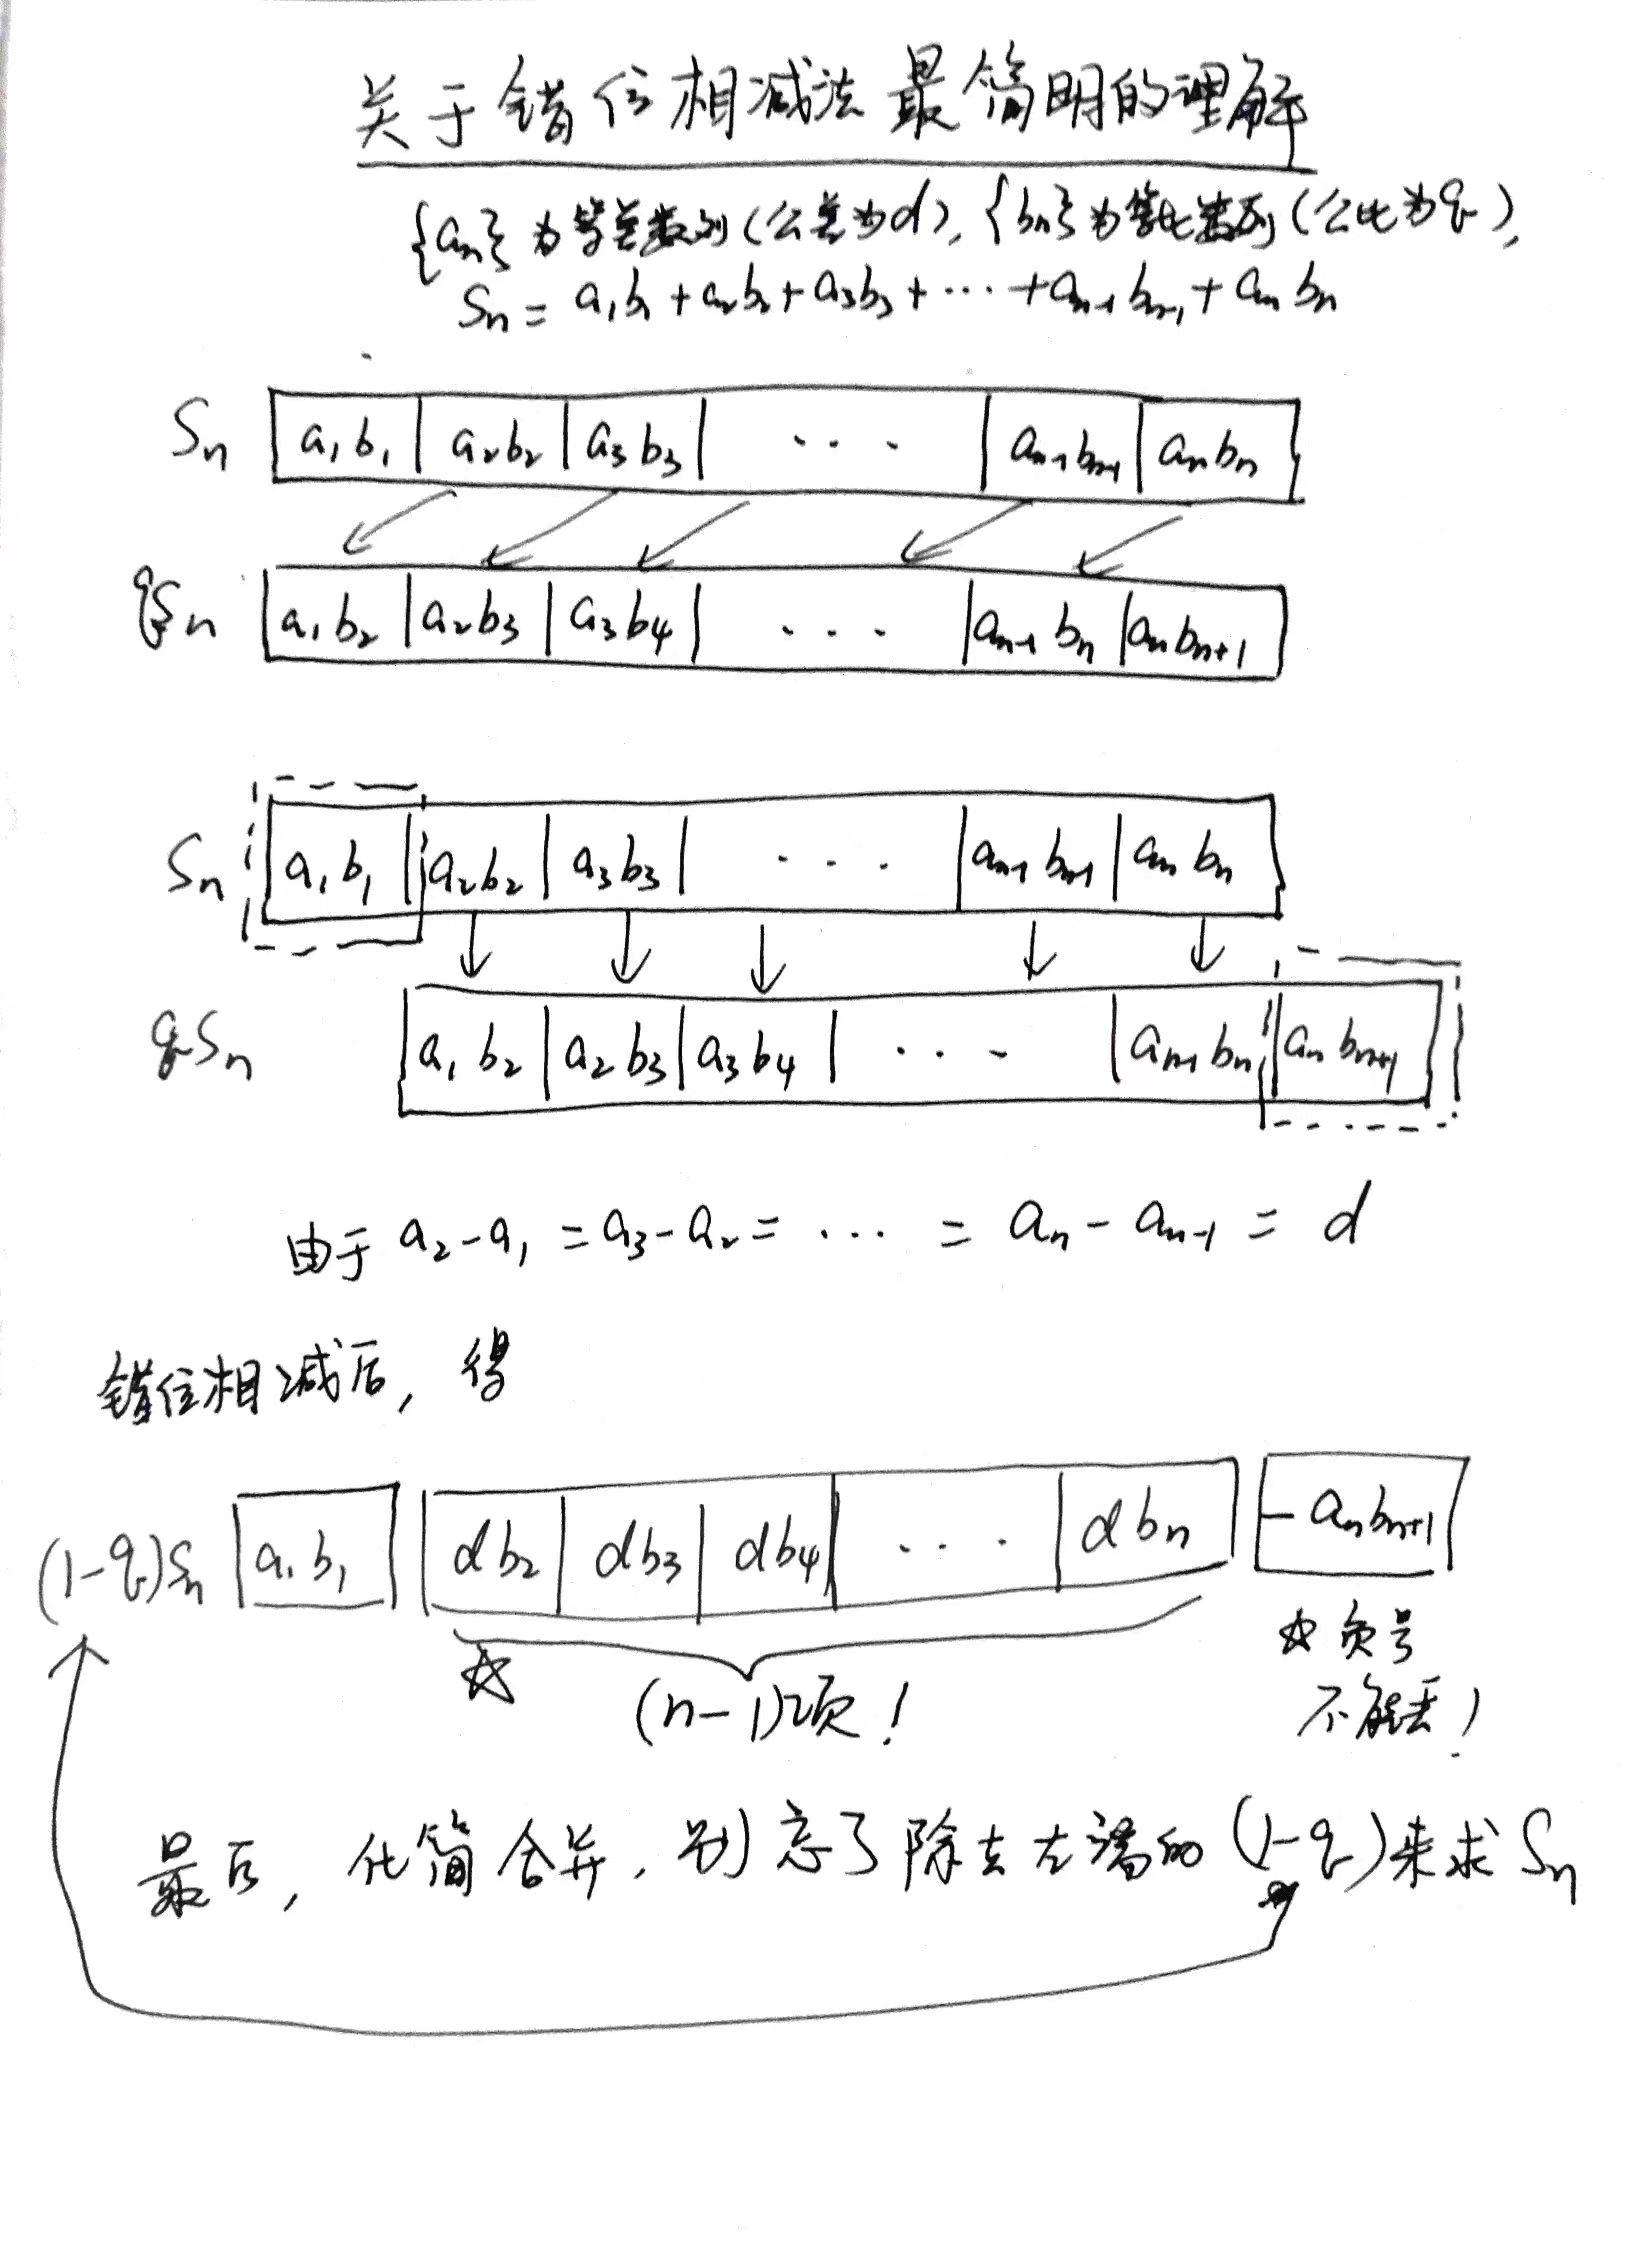 关于错位相减法最简明的理解
{an}为等差数列(公差为d),{bn}为等比数列(公比为q),
Sn = a1b1 + a2b2 + a3b3 + ··· + an-1bn-1 + anbn
Sn a1b1 a2b2 a3b3 ··· an-1bn-1 anbn
qSn a1b2 a2b3 a3b4 ··· an-1bn anbn+1
Sn a1b1 a2b2 a3b3 ··· an-1bn-1 anbn
qSn a1b2 a2b3 a3b4 ··· an-1bn anbn+1
由于 a2-a1 = a3-a2 = ··· = an-an-1 = d
错位相减后, 得
(1-q)Sn a1b1 db2 db3 db4 ··· dbn -anbn+1
☆ (n-1)项!
☆负号
不能丢!
最后, 化简合并, 别忘了除去左端的(1-q)来求Sn